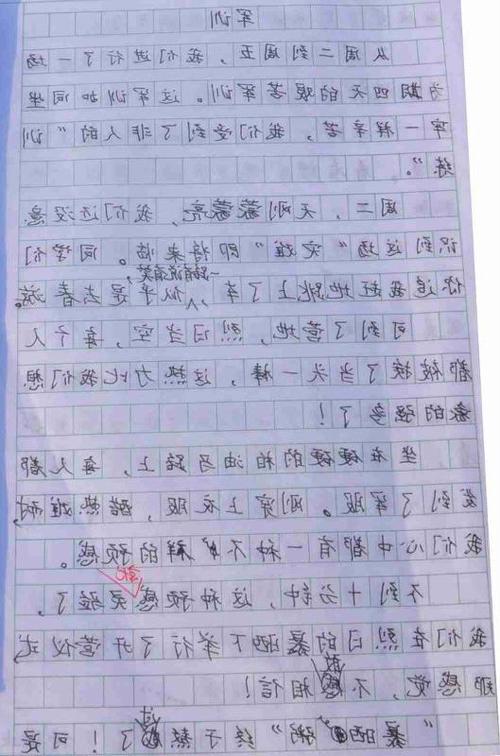 军训
从周二到周五，我们进行了一场
为期四天的艰苦军训。这军训如同坐
牢一样辛苦，我们受到了非人的“训
练”。
周二，天刚蒙蒙亮，我们还没意
识到这场“灾难”即将来临。同学们
一路有说有笑，
你追我赶地跳上了车，似乎是去春游。
可到了营地，烈日当空，每个人
都被挨了当头一棒，这热力比我们想
象的强多了！
坐在硬硬的柏油马路上，每人都
发到了军服。刚穿上衣服，酷热难耐，
我们心中都有一种不祥的预感。
不到十分钟，这种预感灵验了。
我们在烈日的暴晒下举行了开营仪式
那感觉，不敢相信！
“暴晒粥”终于熬过了！可是